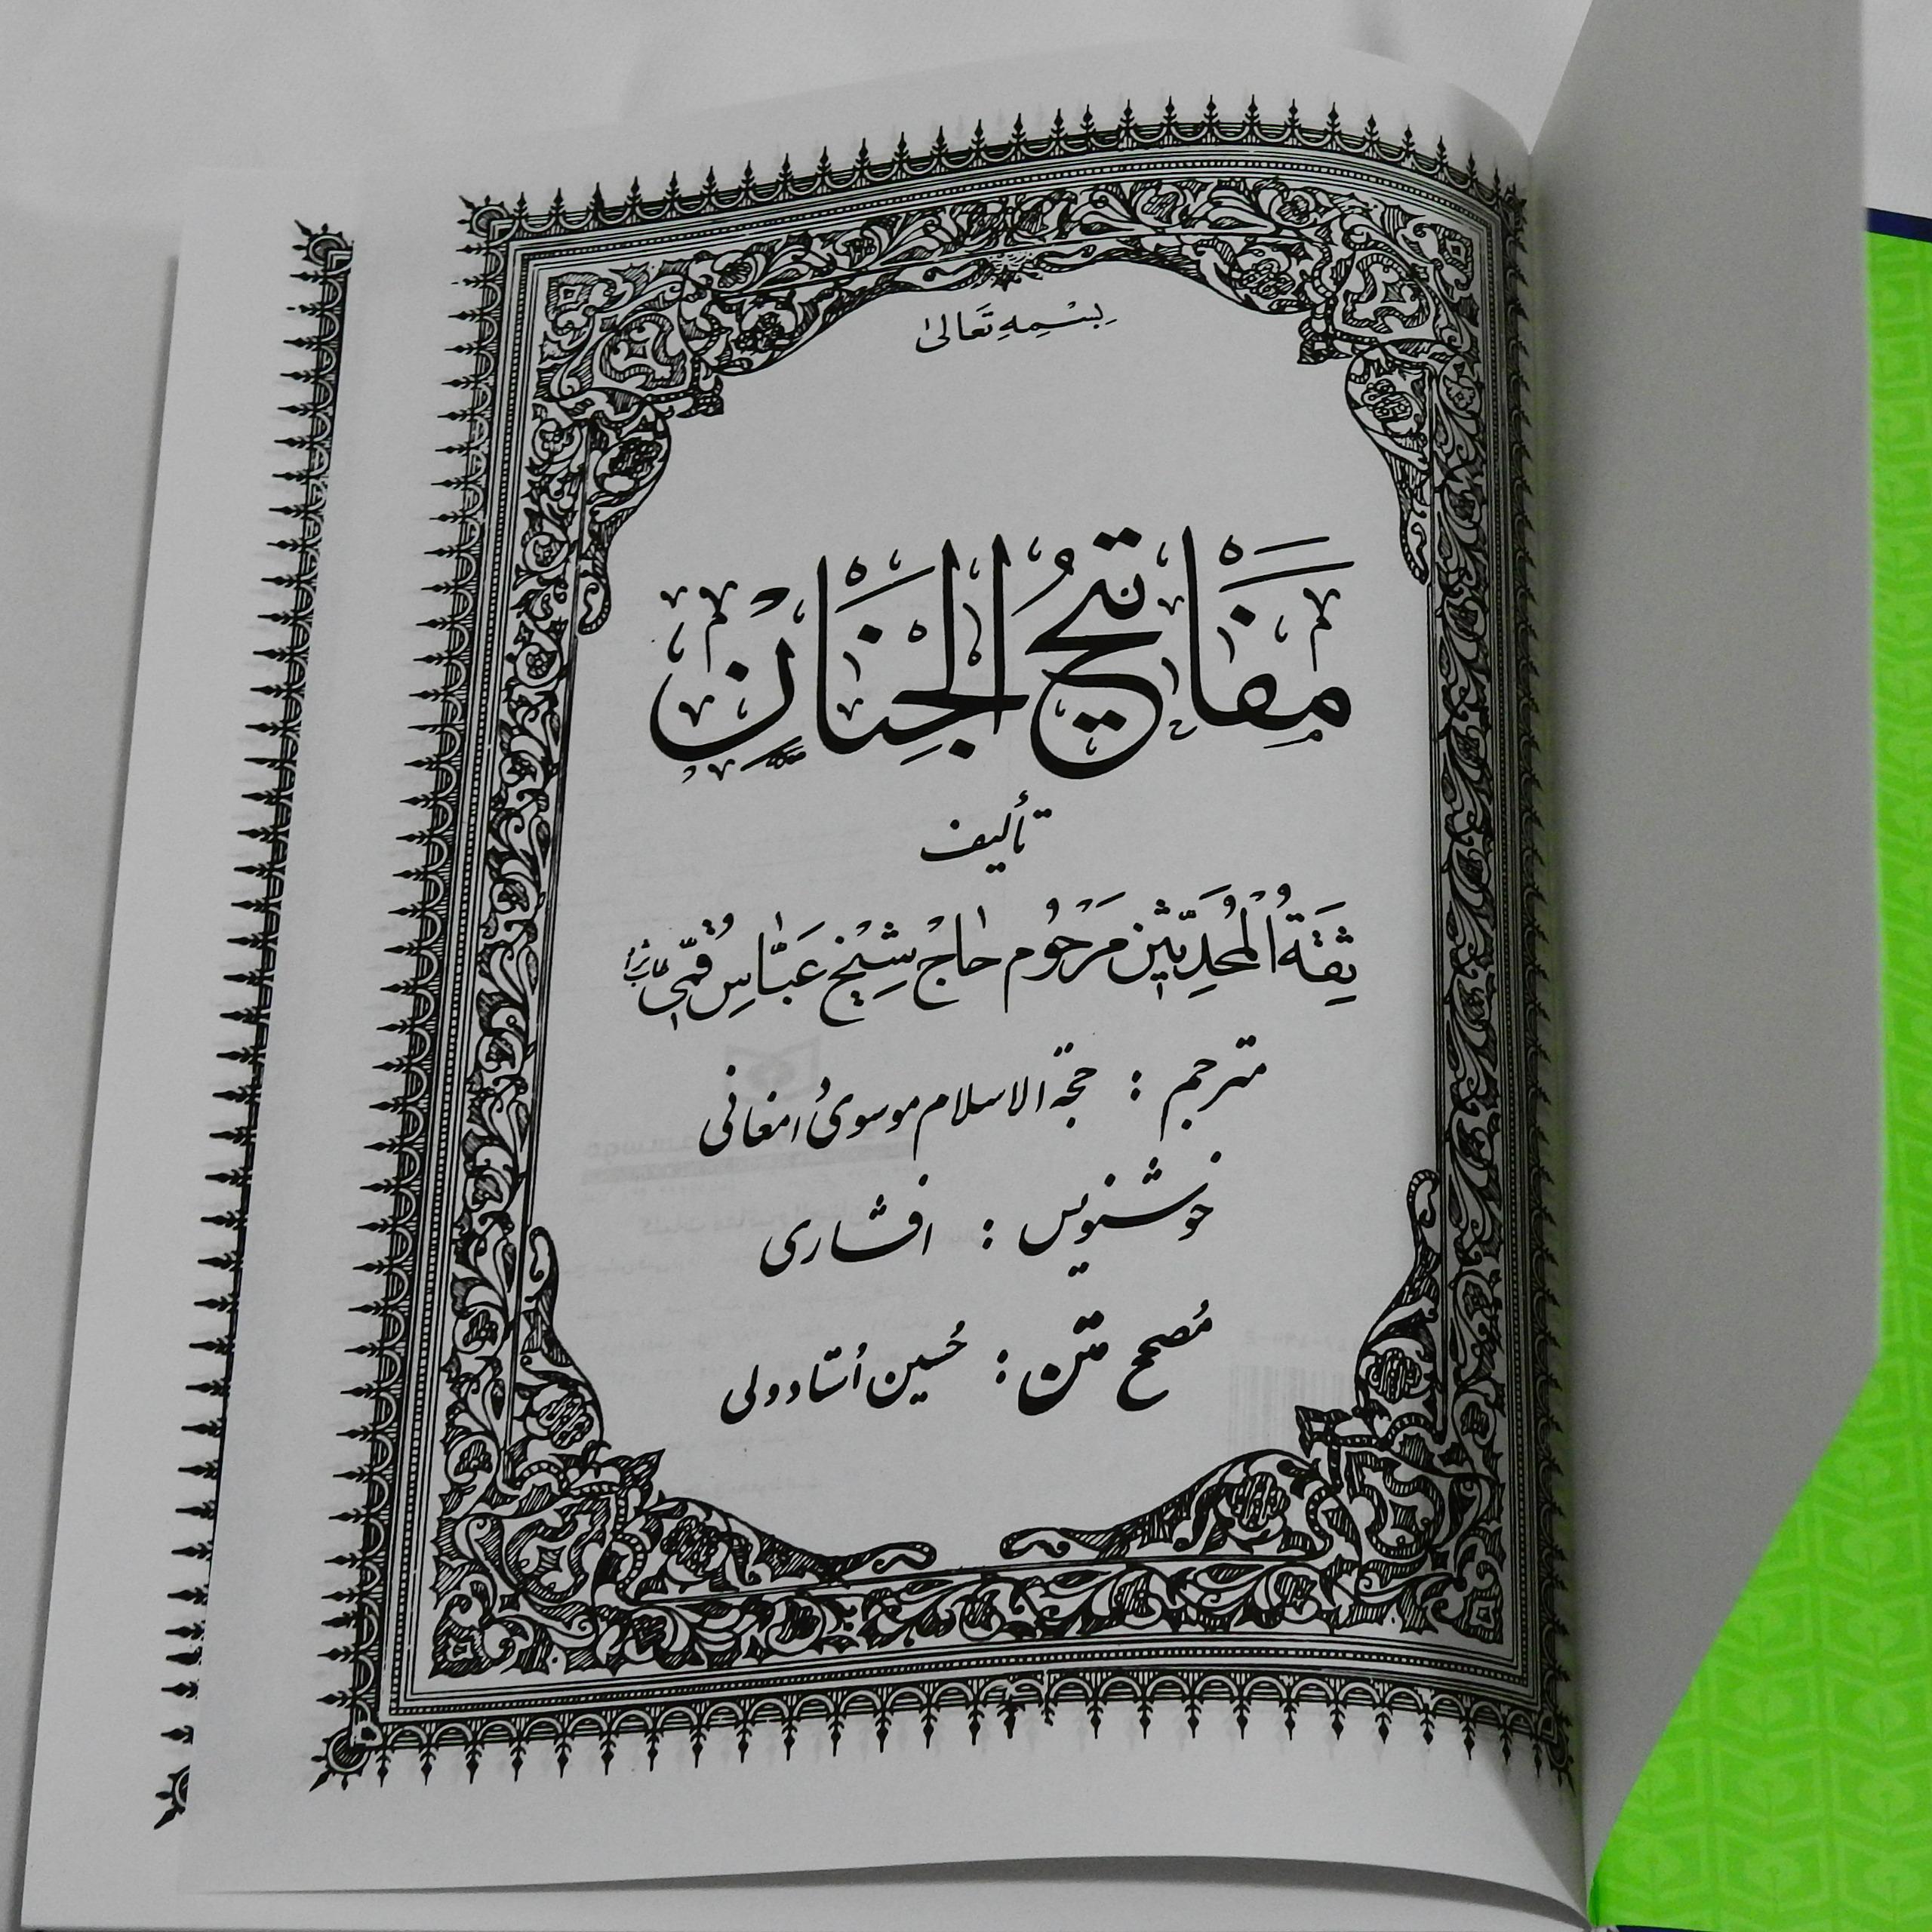 بِسْمِهِ تَعَالیٰ
مَفَاتِيحُ الْجِنَانِ
تألیف
ثِقَةُ الْمُحَدِّثِينَ مَرْحُوم حَاجْ شِيْخ عَبَّاسِ قُمّی
مترجم : حجة الاسلام موسوی دامغانی
خوشنویس : افشاری
مُصحح متن : حُسین اُستادولی